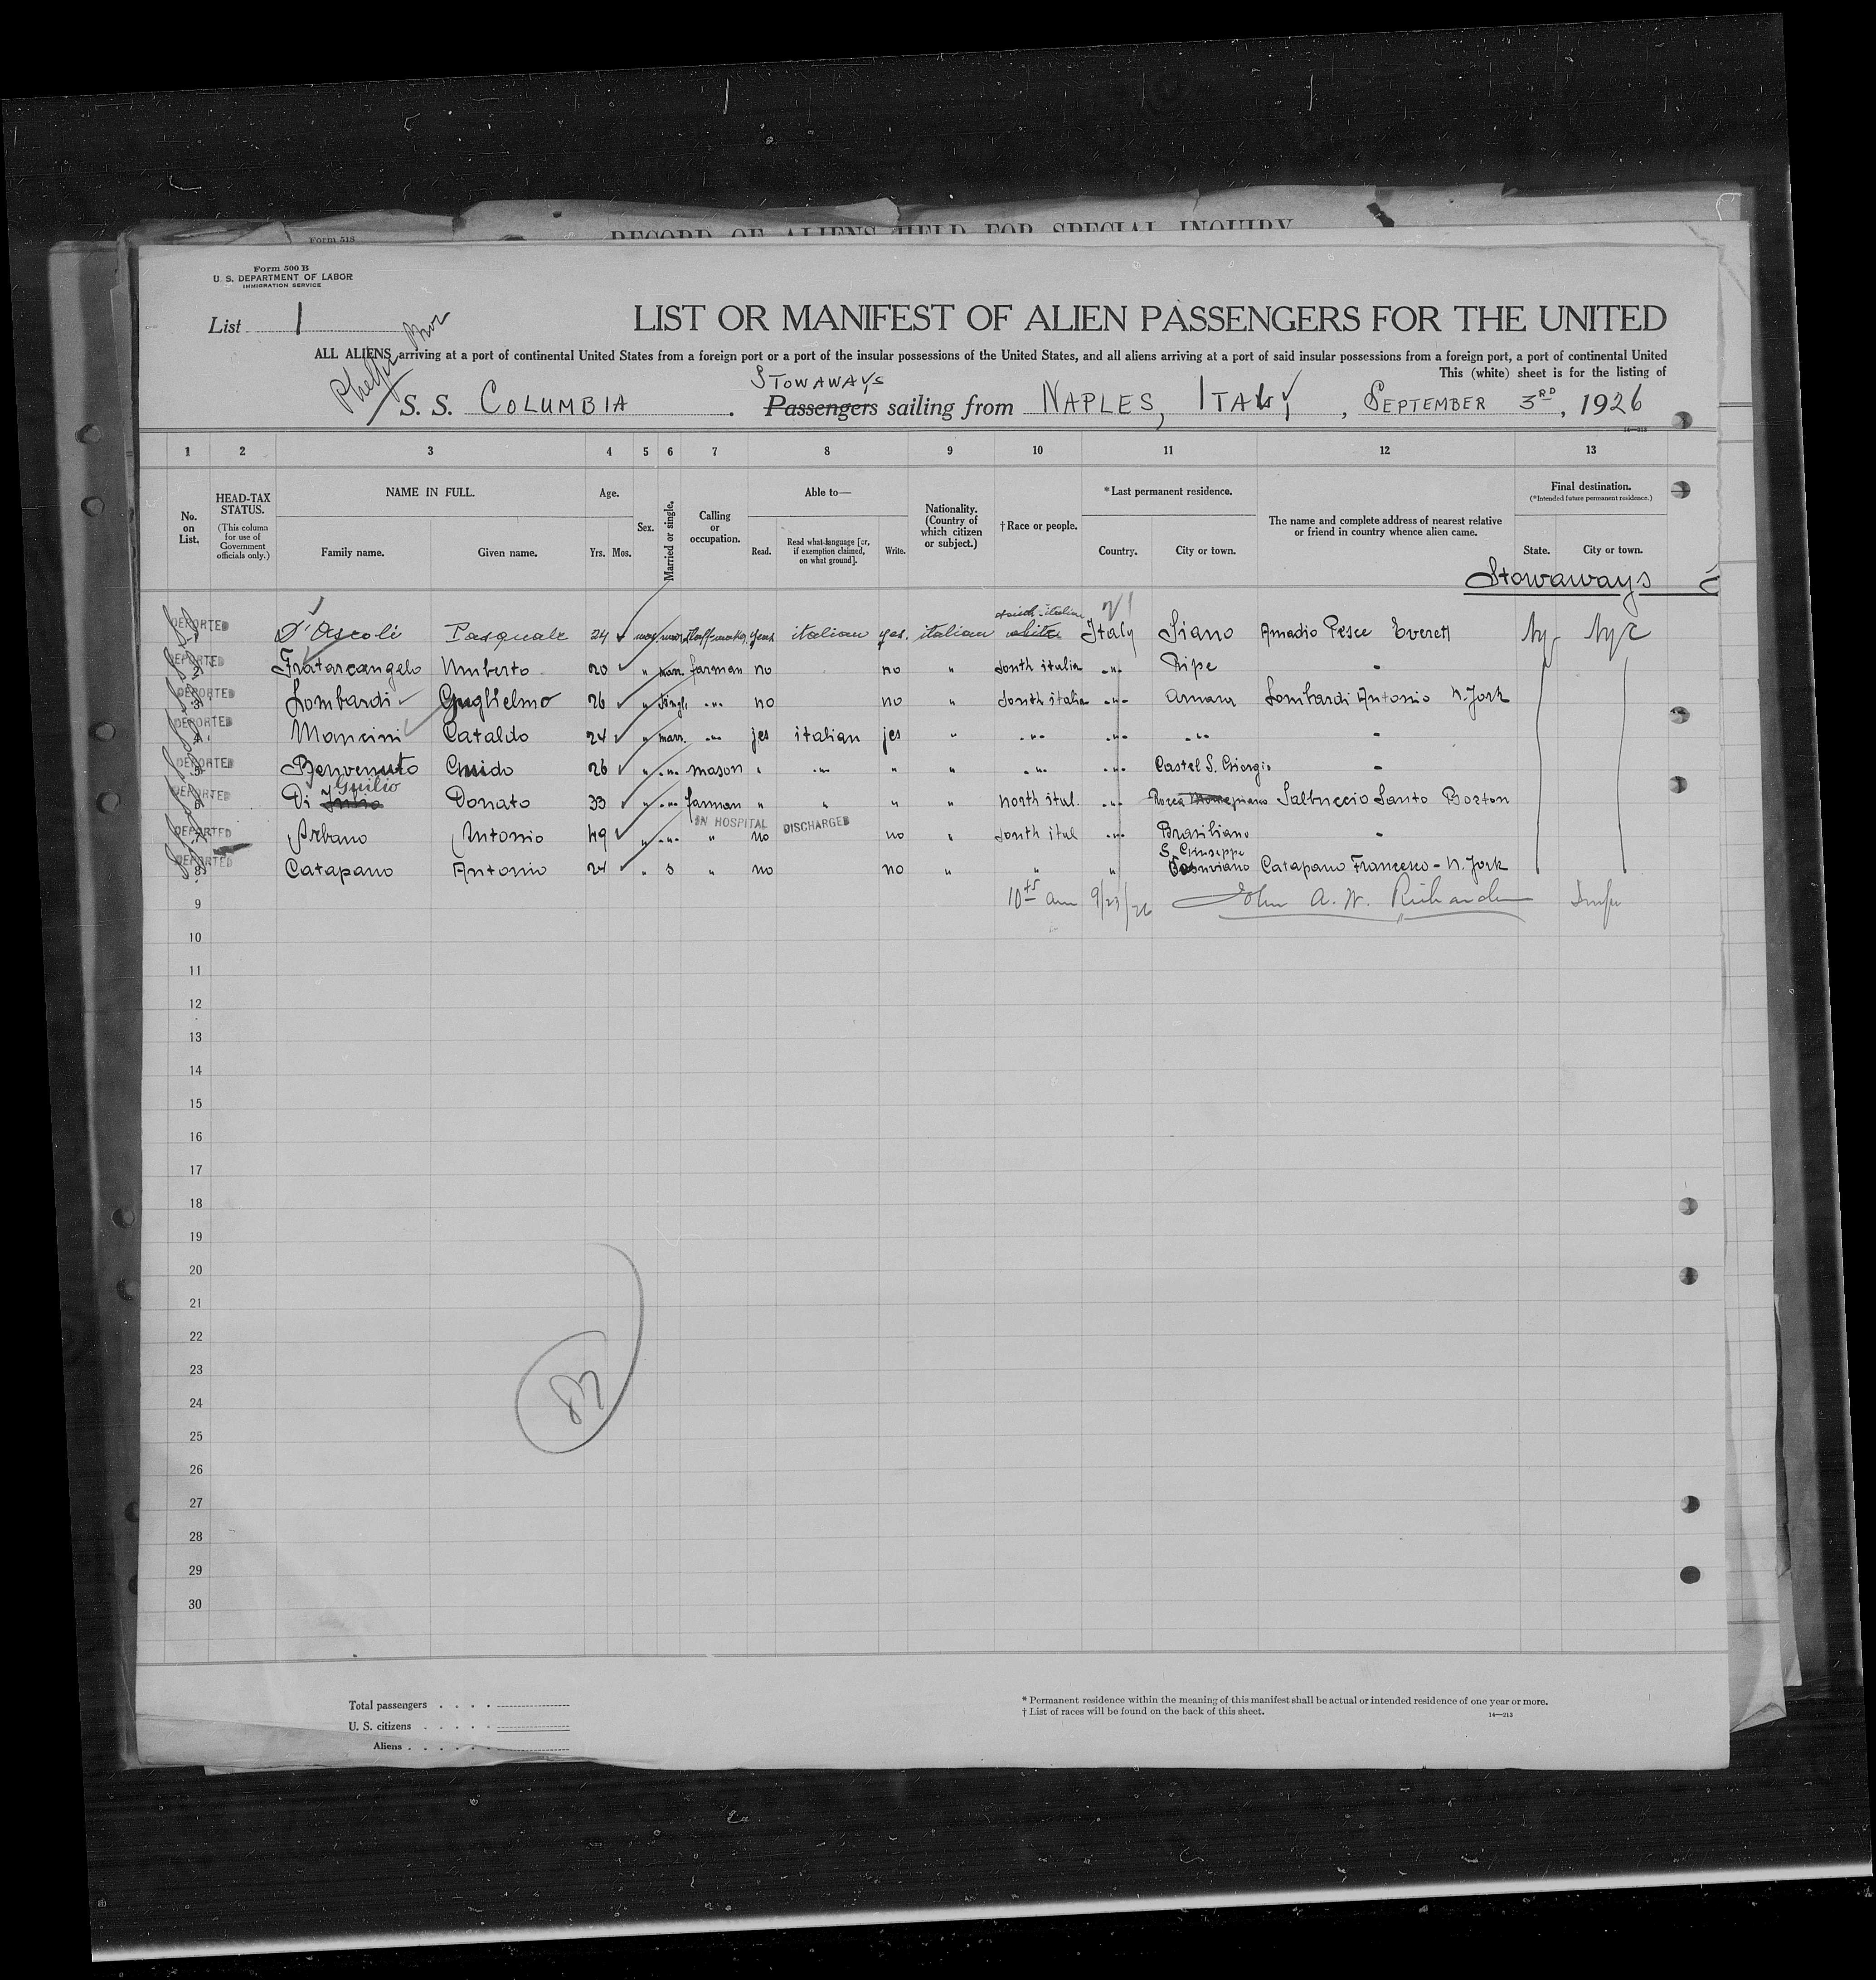 Form 518
RECORD OF ALIENS HELD FOR SPECIAL INQUIRY
Form 500 B
U. S. DEPARTMENT OF LABOR
IMMIGRATION SERVICE
List 1
LIST OR MANIFEST OF ALIEN PASSENGERS FOR THE UNITED
ALL ALIENS arriving at a port of continental United States from a foreign port or a port of the insular possessions of the United States, and all aliens arriving at a port of said insular possessions from a foreign port, a port of continental United
This (white) sheet is for the listing of
STOWAWAYS
S. S. COLUMBIA . Passengers sailing from NAPLES, ITALY , SEPTEMBER 3RD, 1926
1 2 3 4 5 6 7 8 9 10 11 12 13
No. on List.
HEAD-TAX STATUS.
(This column for use of Government officials only.)
NAME IN FULL.
Family name. Given name.
Age.
Yrs. Mos.
Sex.
Married or single.
Calling or occupation.
Able to—
Read. Read what language [or, if exemption claimed, on what ground]. Write.
Nationality. (Country of which citizen or subject.)
†Race or people.
*Last permanent residence.
Country. City or town.
The name and complete address of nearest relative or friend in country whence alien came.
Final destination.
(*Intended future permanent residence.)
State. City or town.
Stowaways
DEPORTED D'Ascoli Pasquale 24 italian yes. italian white Italy Siano Amadio Pesce Everett Ny Nyc
DEPORTED Fratarcangelo Umberto 20 " marr. farman no no " south italia -"- Ripe -
DEPORTED Lombardi Guglielmo 26 " singl. -"- no no " south italia -"- Arnara Lombardi Antonio N. York
DEPORTED Mancini Cataldo 24 " marr. -"- jes italian jes " -"- -"- -"- -
DEPORTED Benvenuto Guido 26 " -"- mason " -"- " " -"- -"- Castel S. Giorgio -
DEPORTED Di Giulio Donato 33 " -"- farman " " " " north ital. -"- Rocca Salbuccio Santo Boston
IN HOSPITAL DISCHARGED
DEPORTED Arbano Antonio 49 " -"- " no no " south ital -"- Brasiliano -
S. Giuseppe
DEPORTED Catapano Antonio 24 " s " no no " " " Vesuviano Catapano Francesco - N. York
9 10 45 am 9/23/26 John A. W. Richards
10
11
12
13
14
15
16
17
18
19
20
21
22
23
24
25
26
27
28
29
30
Total passengers . . . .
U. S. citizens . . . . .
Aliens . . . . . .
* Permanent residence within the meaning of this manifest shall be actual or intended residence of one year or more.
† List of races will be found on the back of this sheet.
14—213